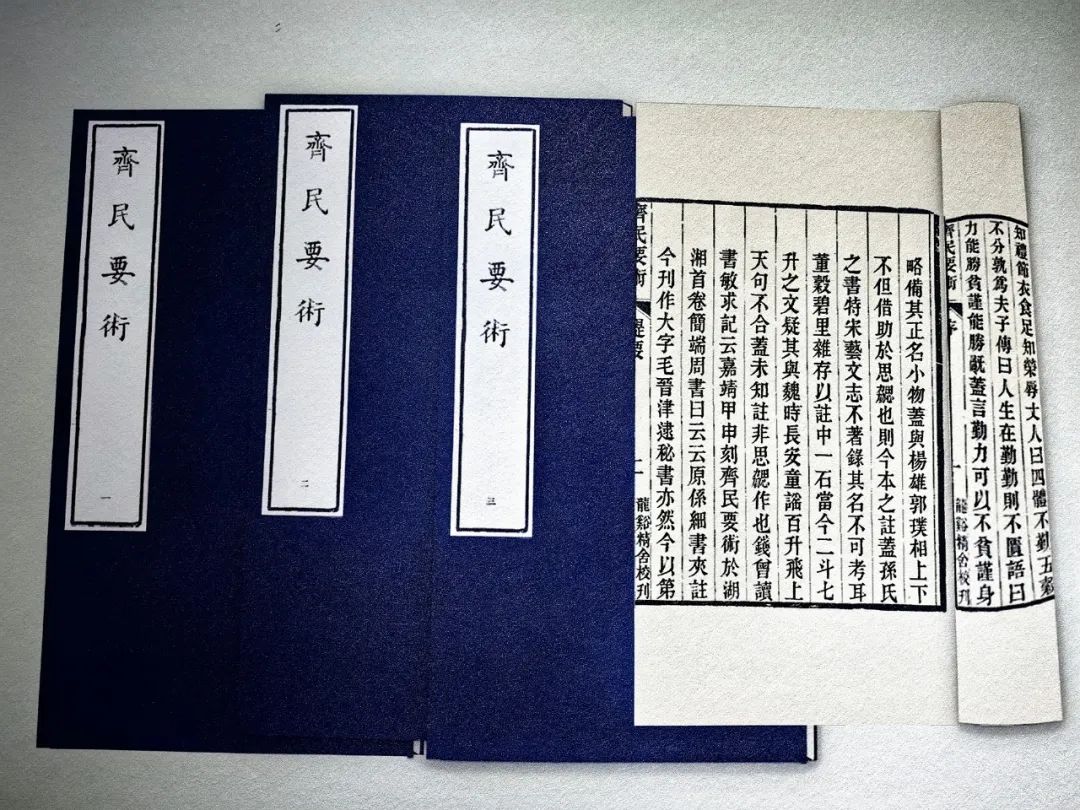 齊民要術
一
齊民要術
二
齊民要術
三
知禮節衣食足知榮辱丈人曰四體不勤五穀
不分孰爲夫子傳曰人生在勤勤則不匱語曰
力能勝貧謹能勝禍蓋言勤力可以不貧謹身
齊民要術 序 一 龍谿精舍校刊
略備其正名小物蓋與楊雄郭璞相上下
不但借助於思勰也則今本之註蓋孫氏
之書特宋藝文志不著錄其名不可考耳
董穀碧里雜存以註中一石當今二斗七
升之文疑其與魏時長安童謠百升飛上
天句不合蓋未知註非思勰作也錢曾讀
書敏求記云嘉靖甲申刻齊民要術於湖
湘首卷簡端周書曰云云原係細書夾註
今刊作大字毛晉津逮秘書亦然今以第
齊民要術 提要 龍谿精舍校刊